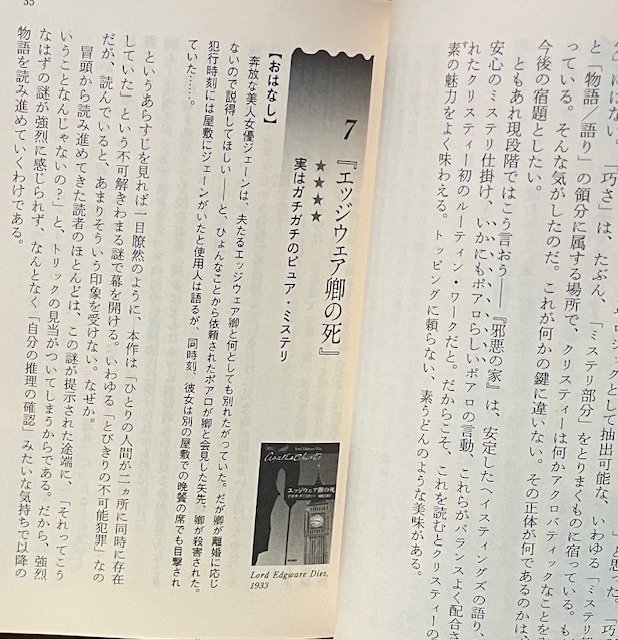 かにはない。「巧さ」は、たぶん、「ミステリ部分」
と「物語／語り」の領分に属する場所で、クリスティーは何かアクロバティックなことを
っている。そんな気がしたのだ。これが何かの鍵に違いない。その正体が何であるのかは、
今後の宿題としたい。
ともあれ現段階ではこう言おう――『邪悪の家』は、安定した
安心のミステリ仕掛け、いかにもポアロらしいポアロの言動、これらがバランスよく配合
れたクリスティー初のルーティン・ワークだと。だからこそ、これを読むとクリスティーの
素の魅力をよく味わえる。トッピングに頼らない、素うどんのような美味がある。
35
7 『エッジウェア卿の死』
★★★★
実はガチガチのピュア・ミステリ
Agatha Christie
エッジウェア卿の死
Lord Edgware Dies,
1933
【おはなし】
奔放な美人女優ジェーンは、夫たるエッジウェア卿と何としても別れたがっていた。だが卿が離婚に応じ
ないので説得してほしい――と、ひょんなことから依頼されたポアロが卿と会見した矢先、卿が殺害された。
犯行時刻には屋敷にジェーンがいたと使用人は語るが、同時刻、彼女は別の屋敷での晩餐の席でも目撃され
ていた……。
というあらすじを見れば一目瞭然のように、本作は「ひとりの人間が二ヵ所に同時に存在
していた」という不可解きわまる謎で幕を開ける。いわゆる「とびきりの不可能犯罪」なの
だが、読んでいると、あまりそういう印象を受けない。なぜか。
冒頭から読み進めてきた読者のほとんどは、この謎が提示された途端に、「それってこう
いうことなんじゃないの？」と、トリックの見当がついてしまうからである。だから、強烈
なはずの謎が強烈に感じられず、なんとなく「自分の推理の確認」みたいな気持ちで以降の
物語を読み進めていくわけである。